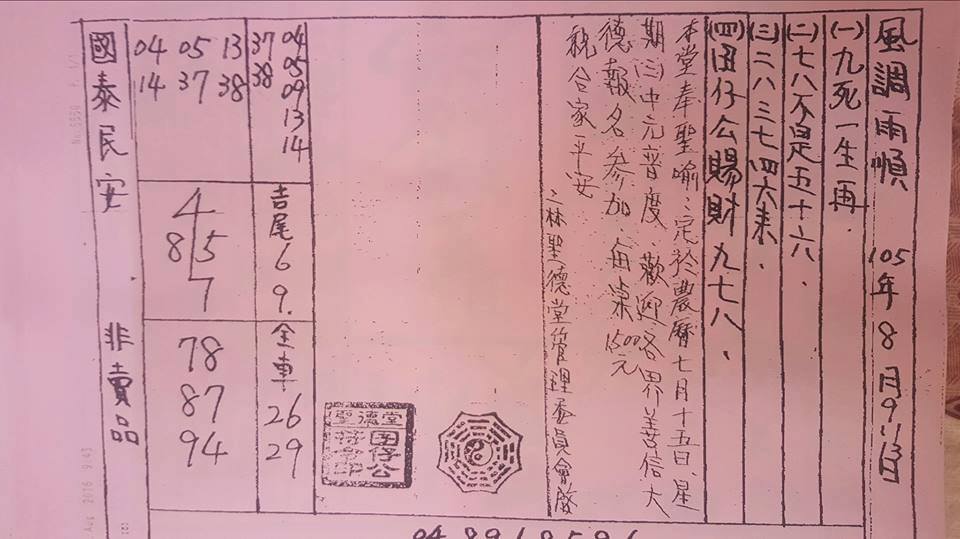 風調雨順 105年8月9.11.13日
(一)九死一生再.
(二)七八不是五十六.
(三)二八三七四六來.
(四)囝仔公賜財九七八.
本堂奉聖喻:定於農曆七月十五日,星
期(三)中元普度,歡迎各界善信大
德報名參加,每桌1500元
祝合家平安
二林聖德堂管理委員會啟
聖德堂
囝仔公
37 04
38 05
09
13
14
吉尾
6
9.
全車
26
29
04 05 13
14 37 38
4
8 5
7
78
87
94
國泰民安 非賣品
Aug 2016 9:43